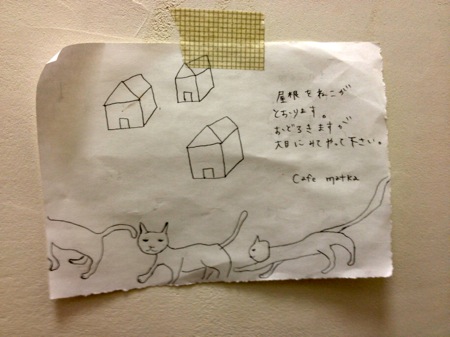 屋根をねこが
とおります。
おどろきますが
大目にみてやって下さい。
Cafe matka